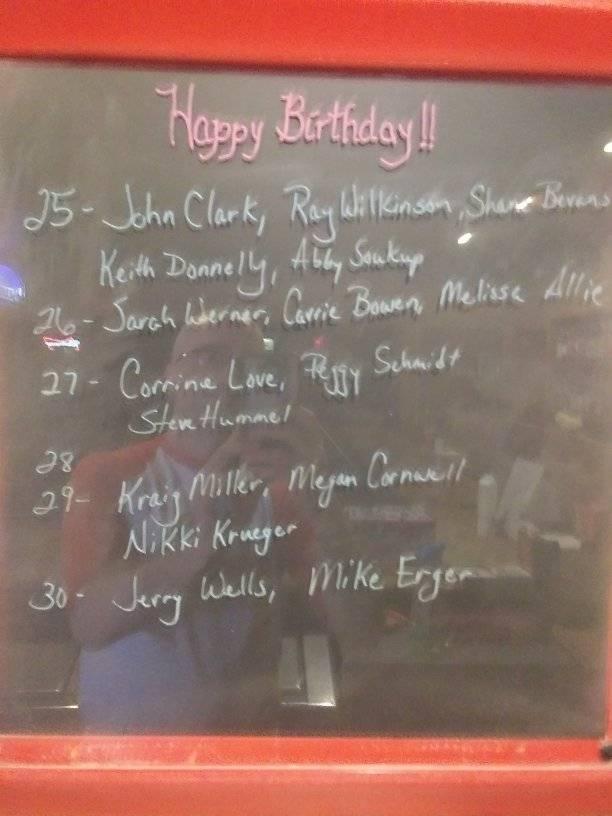 Happy Birthday!!
25 - John Clark, Ray Wilkinson, Shane Bevans
Keith Donnelly, Abby Soukup
26 - Sarah Werner, Carrie Bowen, Melissa Allie
27 - Corrina Love, Peggy Schmidt
Steve Hummel
28
29 - Kraig Miller, Megan Cornwell
Nikki Krueger
30 - Jerry Wells, Mike Erger